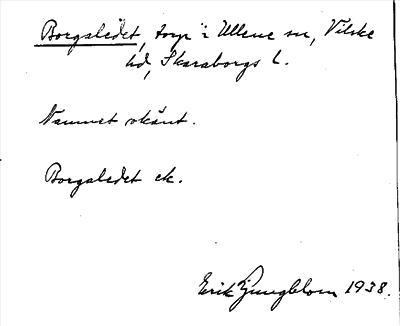 Borgsledet, torp i Ullene sn, Vilske
hd, Skaraborgs l.
Namnet okänt.
Borgaledet ek.
Erik Ljungblom 1938.